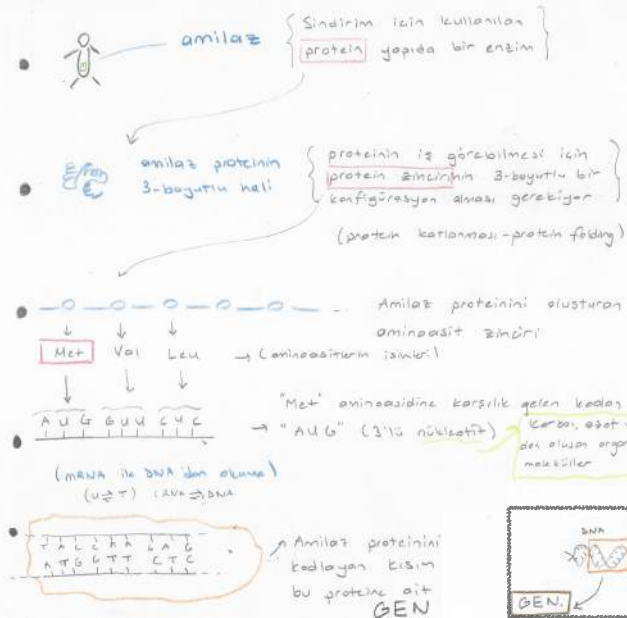 amilaz
Sindirim için kullanılan
protein yapıda bir enzim
amilaz proteinin
3-boyutlu hali
proteinin iş görebilmesi için
protein zincirinin 3-boyutlu bir
konfigürasyon alması gerekiyor
(protein katlanması-protein folding)
Amilaz proteinini oluşturan
aminoasit zinciri
Met Val Leu → (aminoasitlerin isimleri)
AUG GUU CUC
"Met" aminoasidine karşılık gelen kodon
→ "AUG" (3'lü nükleotit)
karbon, azot
den oluşan organ
moleküller
(mRNA ile DNA'dan okuma)
(U⇌T) (RNA⇌DNA
T A C C A A G A G
A T G G T T C T C
Amilaz proteinini
kodlayan kısım
bu proteine ait
GEN
DNA
GEN.